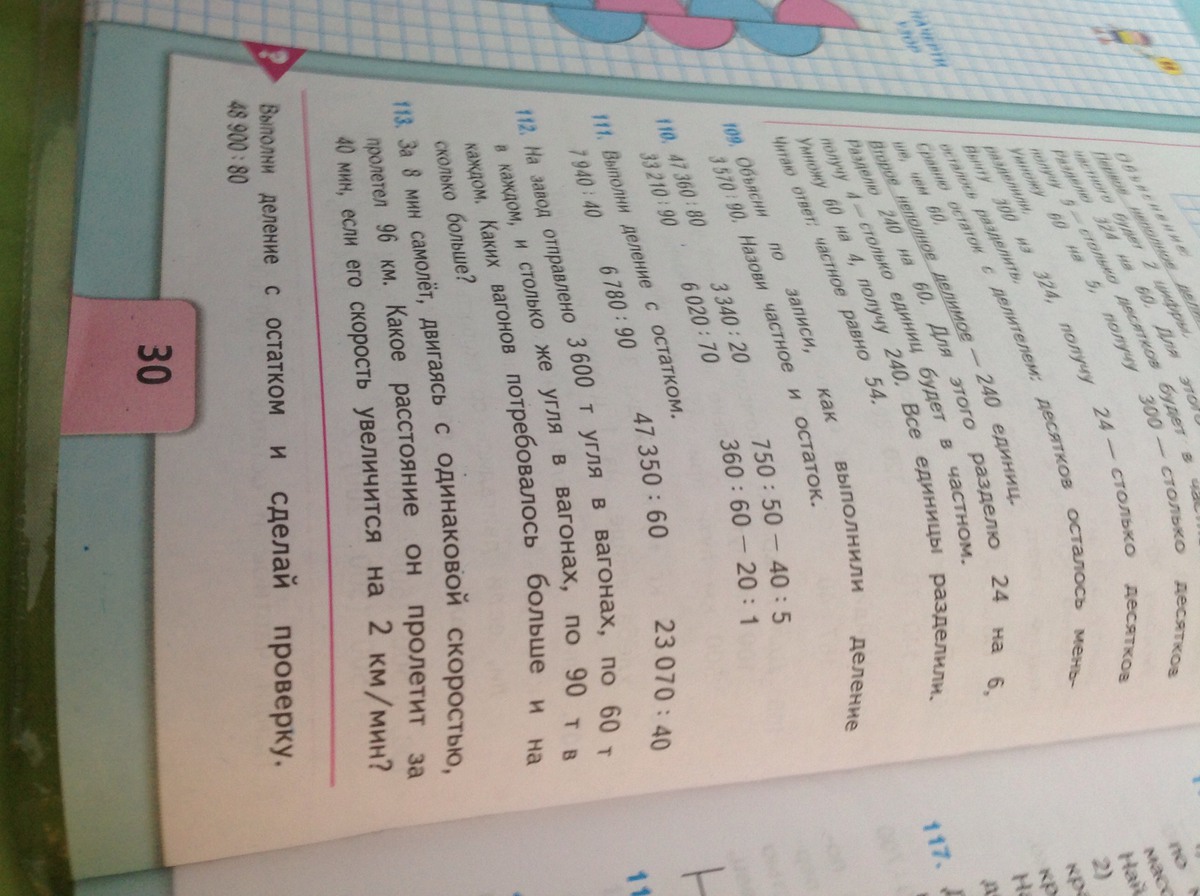 НАЧЕРТИ
УЗОР
Объяснение
Раздели 324 на 60. Для
Разделю 300 — столько десятков
получу 5 — столько десятков
Умножу 60 на 5, получу
разделили.
Вычту 300 из 324, получу 24 — столько десятков
осталось разделить.
Сравню остаток с делителем: десятков осталось мень-
ше, чем 60.
Второе неполное делимое — 240 единиц.
Разделю 240 на 60. Для этого разделю 24 на 6,
получу 4 — столько единиц будет в частном.
Умножу 60 на 4, получу 240. Все единицы разделили.
Читаю ответ: частное равно 54.
109. Объясни по записи, как выполнили деление
3570 : 90. Назови частное и остаток.
110. 47 360 : 80 3 340 : 20 750 : 50 – 40 : 5
33 210 : 90 6 020 : 70 360 : 60 – 20 : 1
111. Выполни деление с остатком.
7 940 : 40 6 780 : 90 47 350 : 60 23 070 : 40
112. На завод отправлено 3 600 т угля в вагонах, по 60 т
в каждом, и столько же угля в вагонах, по 90 т в
каждом. Каких вагонов потребовалось больше и на
сколько больше?
113. За 8 мин самолёт, двигаясь с одинаковой скоростью,
пролетел 96 км. Какое расстояние он пролетит за
40 мин, если его скорость увеличится на 2 км/мин?
?
Выполни деление с остатком и сделай проверку.
48 900 : 80
30
117.
2)